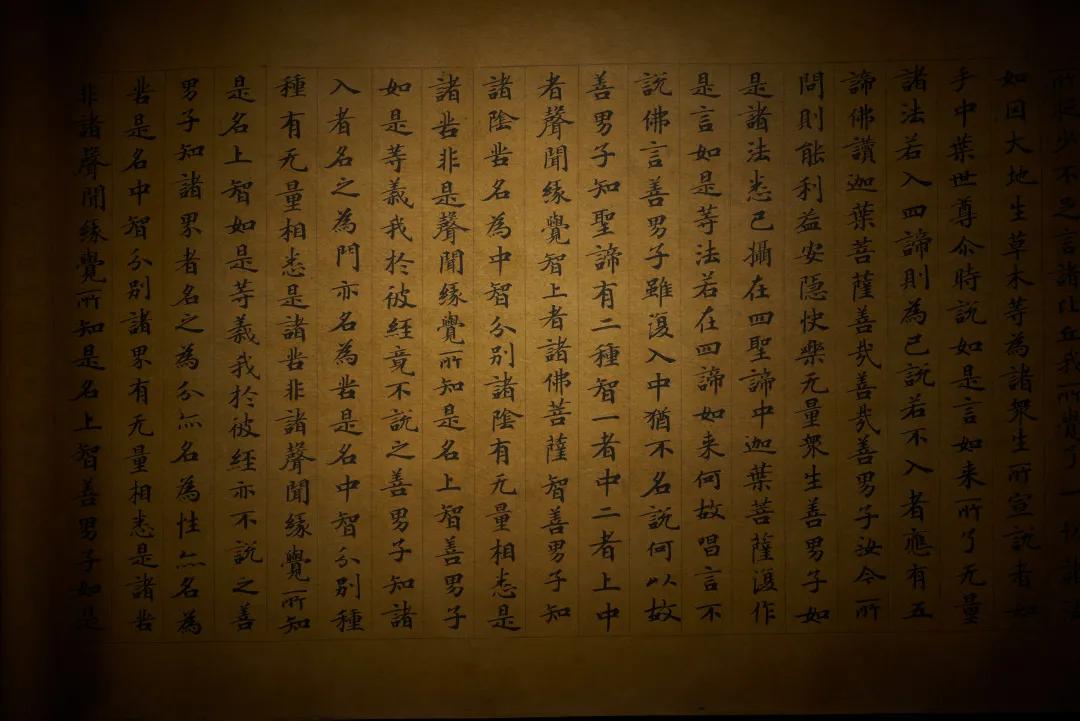 所捉少不足言諸比丘我所覺了一切諸法
如因大地生草木等為諸眾生所宣說者如
手中葉世尊尒時說如是言如来所了无量
諸法若入四諦則為已說若不入者應有五
諦佛讚迦葉菩薩善哉善哉善男子汝今所
問則能利益安隱快樂无量眾生善男子如
是諸法悉已攝在四聖諦中迦葉菩薩復作
是言如是等法若在四諦如来何故唱言不
說佛言善男子雖復入中猶不名說何以故
善男子知聖諦有二種智一者中二者上中
者聲聞緣覺智上者諸佛菩薩智善男子知
諸陰苦名為中智分別諸陰有无量相悉是
諸苦非是聲聞緣覺所知是名上智善男子
如是等義我於彼經竟不說之善男子知諸
入者名之為門亦名為苦是名中智分別種
種有无量相悉是諸苦非諸聲聞緣覺所知
是名上智如是等義我於彼經亦不說之善
男子知諸界者名之為分亦名為性亦名為
苦是名中智分別諸界有无量相悉是諸苦
非諸聲聞緣覺所知是名上智善男子如是